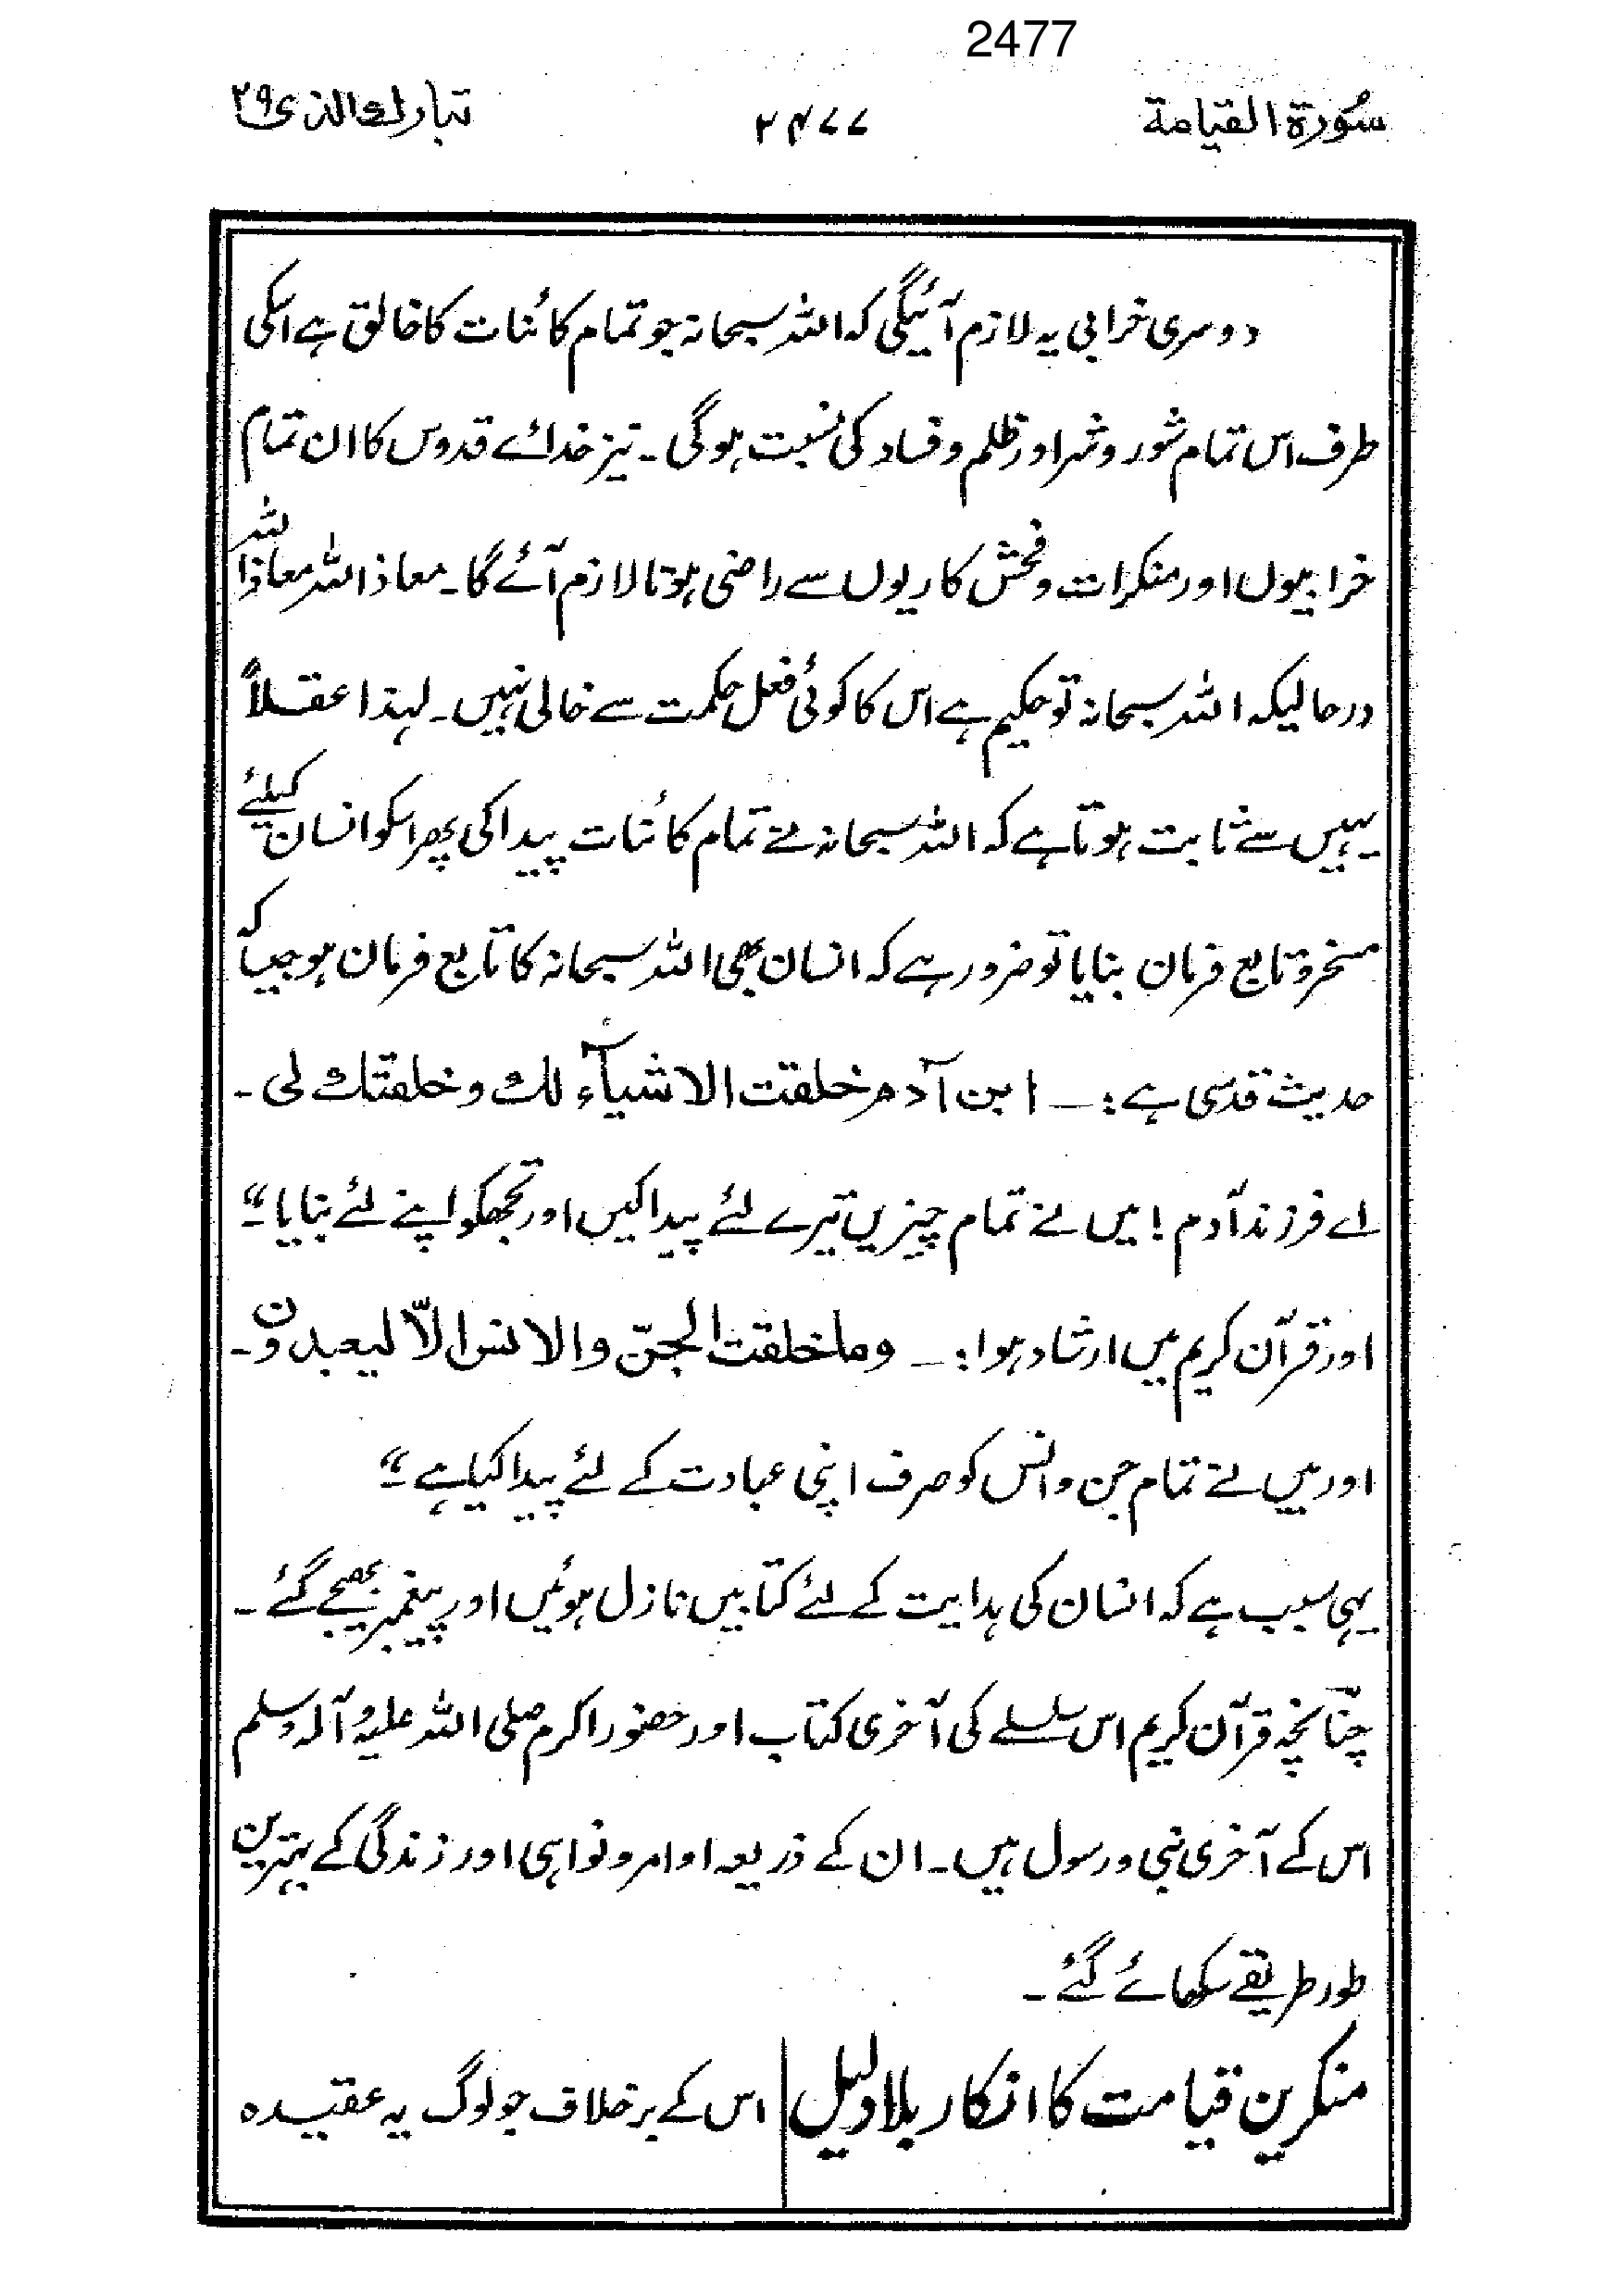 2477
سُورۃ القیامۃ ۲۴۷۷ تبارك الذی ۲۹
دوسری خرابی یہ لازم آئیگی کہ اللہ سبحانہ جو تمام کائنات کا خالق ہے اسکی
طرف اس تمام شور و شر اور ظلم و فساد کی نسبت ہوگی۔ نیز خدائے قدوس کا ان تمام
خرابیوں اور منکرات و فحش کاریوں سے راضی ہونا لازم آئے گا۔ معاذ اللہ معاذ اللہ
درحالیکہ اللہ سبحانہ تو حکیم ہے اس کا کوئی فعل حکمت سے خالی نہیں۔ لہذا عقلاً
یہیں سے ثابت ہوتا ہے کہ اللہ سبحانہ نے تمام کائنات پیدا کی پھر اسکو انسان کیلئے
مسخر و تابع فرمان بنایا تو ضرور ہے کہ انسان بھی اللہ سبحانہ کا تابع فرمان ہو جیسا کہ
حدیث قدسی ہے :۔ ابن آدم خلقت الاشیآء لك و خلقتك لی۔
اے فرزند آدم ! میں نے تمام چیزیں تیرے لئے پیدا کیں اور تجھکو اپنے لئے بنایا۔"
اور قرآن کریم میں ارشاد ہوا :۔ وما خلقت الجنّ والانس الاّ لیعبدون۔
اور میں نے تمام جن و انس کو صرف اپنی عبادت کے لئے پیدا کیا ہے۔"
یہی سبب ہے کہ انسان کی ہدایت کے لئے کتابیں نازل ہوئیں اور پیغمبر بھیجے گئے۔
چنانچہ قرآن کریم اس سلسلے کی آخری کتاب اور حضور اکرم صلی اللہ علیہ وآلہ وسلم
اس کے آخری نبی و رسول ہیں۔ ان کے ذریعہ اوامر و نواہی اور زندگی کے بہترین
طور طریقے سکھائے گئے۔
منکرین قیامت کا انکار بلا دلیل اس کے برخلاف جو لوگ یہ عقیدہ